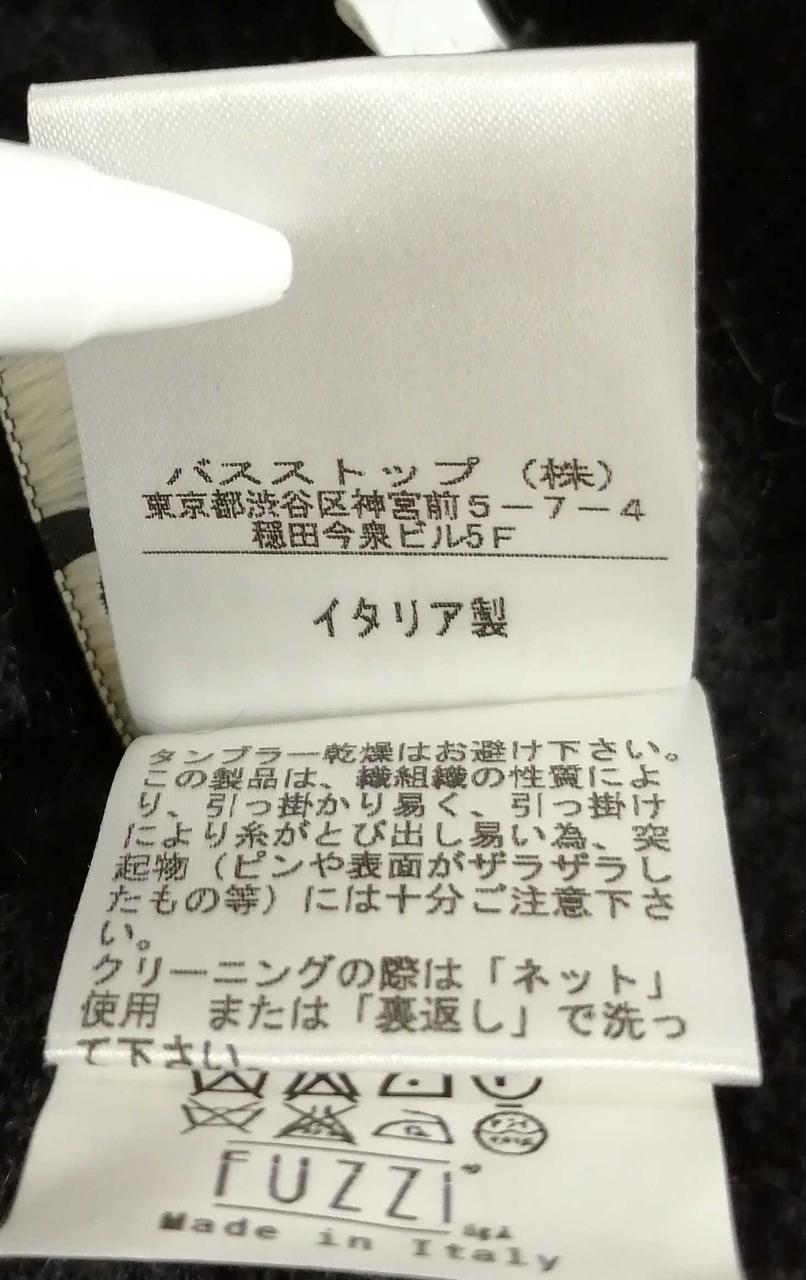 バスストップ (株)
東京都渋谷区神宮前5-7-4
穏田今泉ビル5F
イタリア製
タンブラー乾燥はお避け下さい。
この製品は、繊組織の性質によ
り、引っ掛かり易く、引っ掛け
により糸がとび出し易い為、突
起物(ピンや表面がザラザラし
たもの等)には十分ご注意下さ
い。
クリーニングの際は「ネット」
使用 または「裏返し」で洗っ
て下さい
FUZZI
Made in Italy